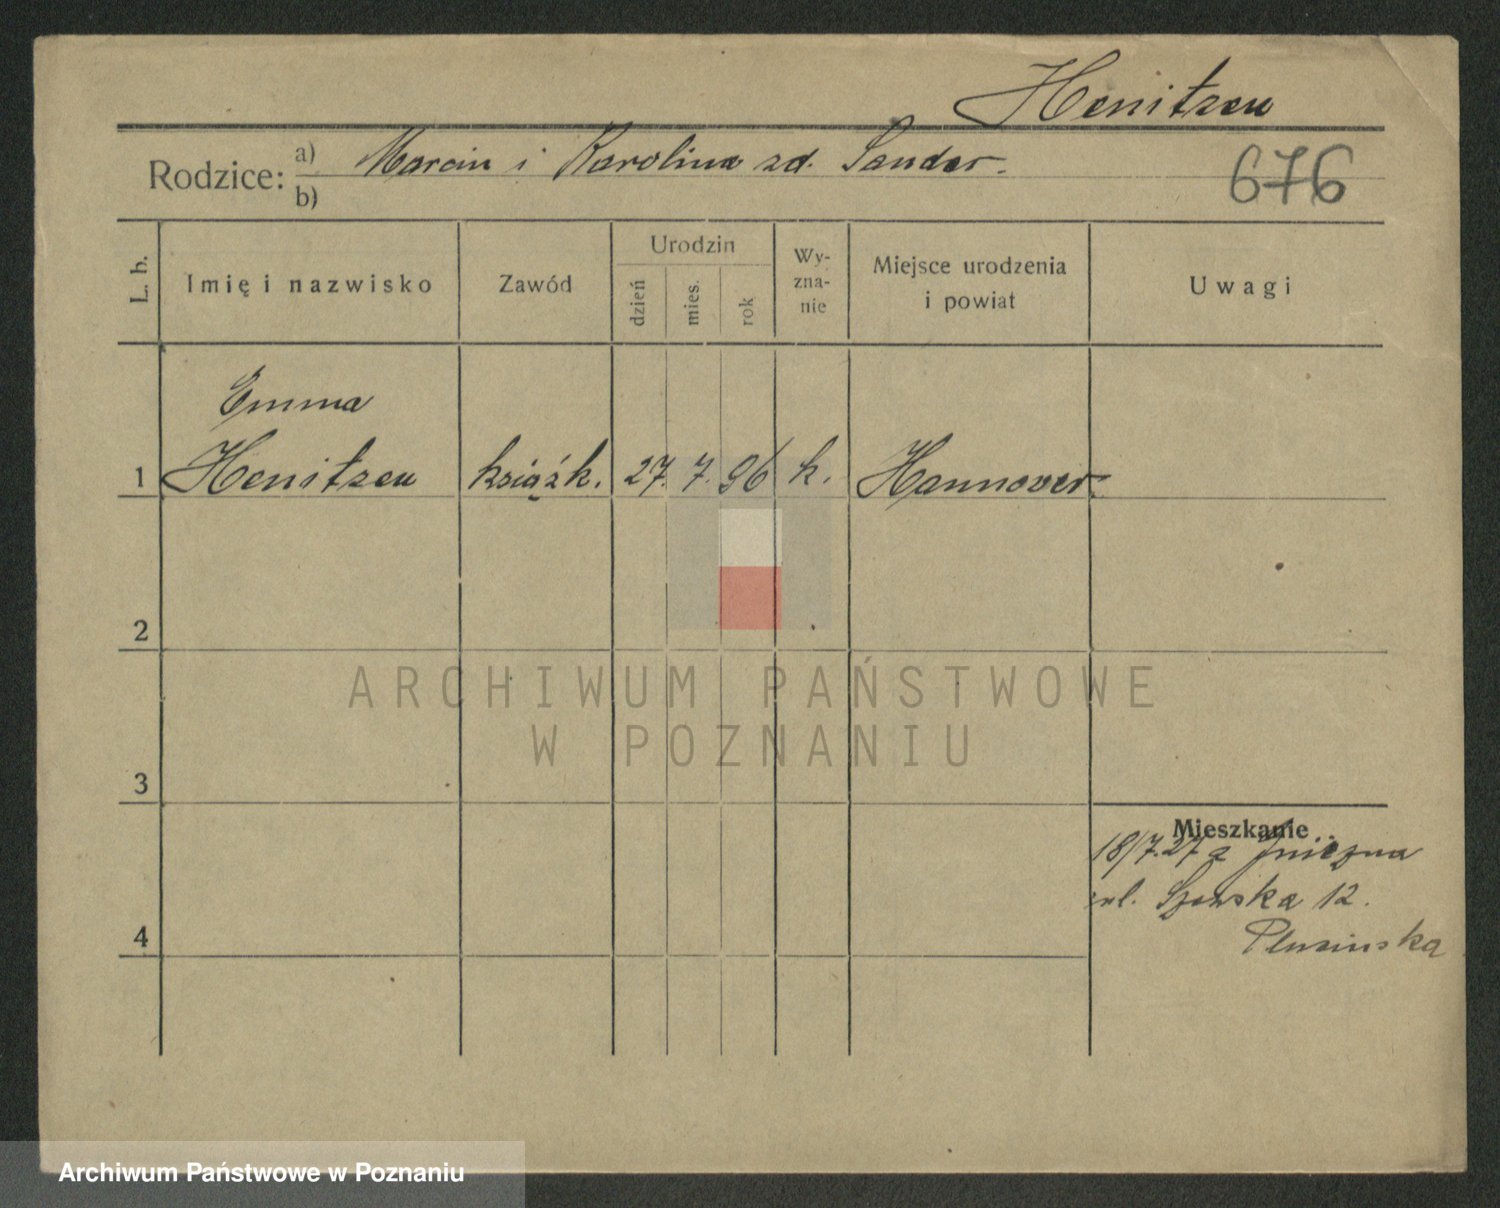 Henitzen
Rodzice: a) Marcin i Karolina zd. Sander.
b)
676
L. b.
Imię i nazwisko
Zawód
Urodzin
dzień
mies.
rok
Wy-
zna-
nie
Miejsce urodzenia
i powiat
Uwagi
Emma
1 Henitzen książk. 27. 7. 96 k. Hannover
2
ARCHIWUM PAŃSTWOWE
W POZNANIU
3
Mieszkanie
18/7.27 z Gniezna
ul. 12.
4
Archiwum Państwowe w Poznaniu